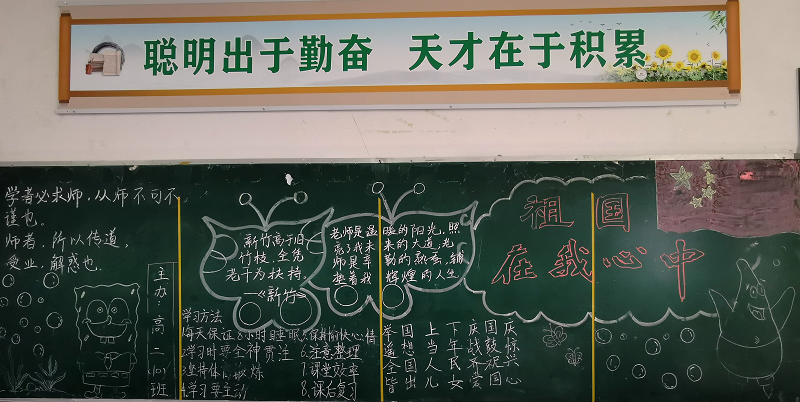 聪明出于勤奋 天才在于积累
学者必求师，从师不可不
谨也。
师者，所以传道，
受业，解惑也。
主办：高二(10)班
新竹高于旧
竹枝，全凭
老干为扶持。
—《新竹》
老师是温暖的阳光，照
亮了我未来的大道，老
师是辛勤的
垫着我辉煌的人生
祖国
在我心中
学习方法
1每天保证8小时睡眠
2学习时要全神贯注
3坚持体育锻炼
4.学习要主动
5保持愉快心情
6.注意整理
7课堂效率
8.课后复习
举国上下庆国庆
遥想当年战鼓惊
全国人民齐祝兴
皆出儿女爱国心